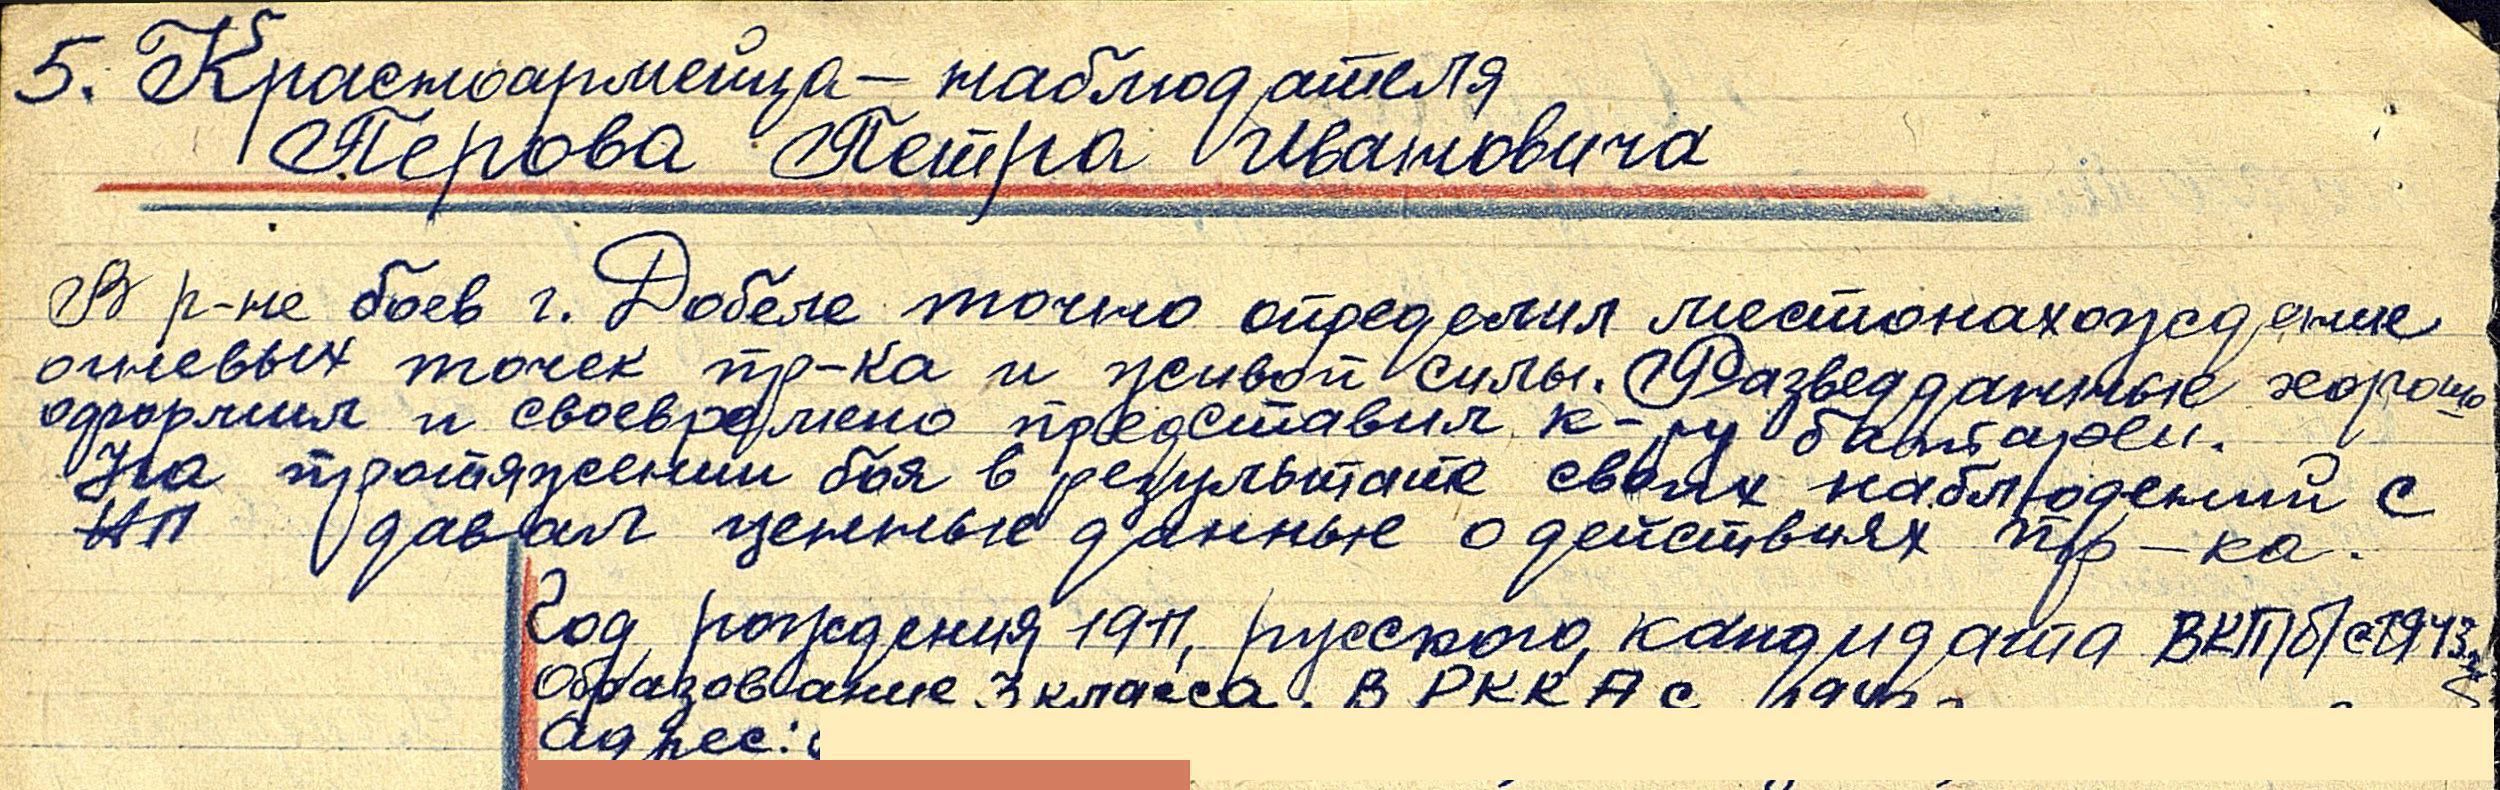 5. Красноармейца — наблюдателя
Перова Петра Ивановича
В р-не боев г. Добеле точно определил местонахождение
огневых точек пр-ка и живой силы. Разведданные хорошо
оформил и своевремено представил к-ру батареи.
На протяжении боя в результате своих наблюдений с
НП давал ценные данные о действиях пр-ка.
Год рождения 1911, русского, кандидата ВКП/б/ с 1943г
Образование 3 класса. В РККА с
Адрес: